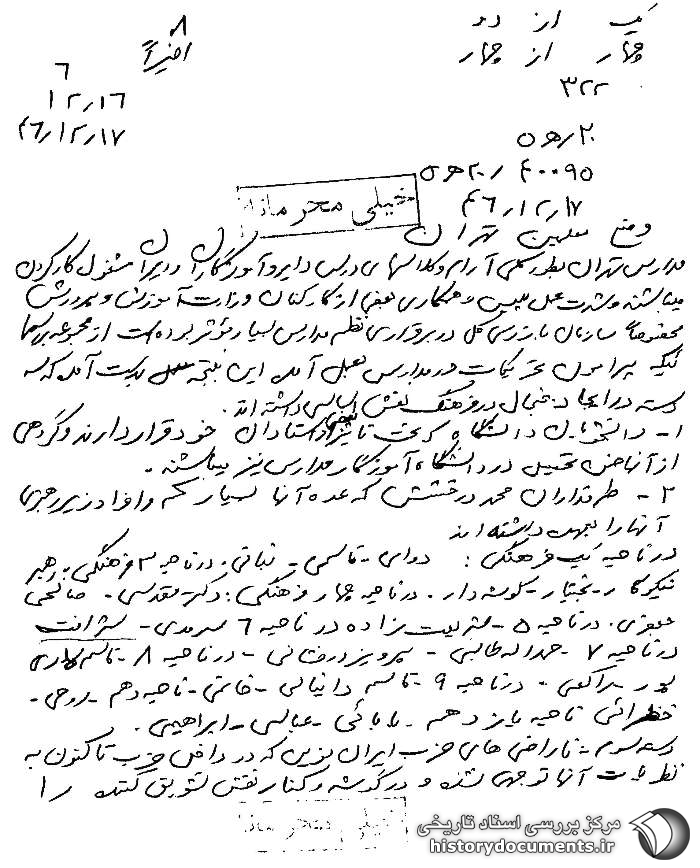 یک از دو
چهار از چهار
۳۲۲
۸
اخیراً
۶
۱۲/۱۶
۴۶/۱۲/۱۷
۲۰/ ه‍ ۵
۴۰۰۹۵ / ۲۰ ه‍ ۵
۴۶/۱۲/۱۷
خیلی محرمانه
وضع معلمین تهران
مدارس تهران بطور کلی آرام و کلاسهای درس دایر و آموزگاران و دبیران مشغول کار کردن
میباشند و شدت عمل پلیس و همکاری بعضی از کارکنان وزارت آموزش و پرورش
مخصوصاً سازمان بازرسی کل در برقراری نظم مدارس بسیار مؤثر بوده است از مجموعه بررسیها
ئیکه پیرامون تحریکات در مدارس بعمل آمده این نتیجه بدست آمده که سه
دسته در ایجاد جنجال در فرهنگ نقش اساسی داشته اند.
۱- دانشجویان دانشگاه که تحت تاثیر بعضی از استادان خود قرار دارند و گروهی
از آنها ضمن تحصیل در دانشگاه آموزگار مدارس نیز میباشند.
۲- طرفداران محمد درخشش که عده آنها بسیار کم و افراد زیر رهبری
آنها را بعهده داشته اند
در ناحیه یک فرهنگی: دوای - قاسمی - نباتی. در ناحیه ۳ فرهنگی - رهبر
نیکوکار - بختیار - گوشه دار. در ناحیه چهار فرهنگی: دکتر مقدسی - صالحی
جعفری. در ناحیه ۵ - شریعت زاده در ناحیه ۶ سرمدی - شرافت
در ناحیه ۷ - حمداله طالبی - پرویز درخشانی - در ناحیه ۸ - قاسم
پور - در ناحیه ۹ - قاسم دانیالی - خاتمی - ناحیه دهم - روحی -
ناحیه یازدهم - بابائی - عباسی - ابراهیمی.
دسته سوم - ناراضی های حزب ایران نوین که در داخل حزب تا کنون به
نظریات آنها توجهی نشده و در گوشه و کنار نقش تشویق کننده را
خیلی محرمانه
مرکز بررسی اسناد تاریخی
historydocuments.ir